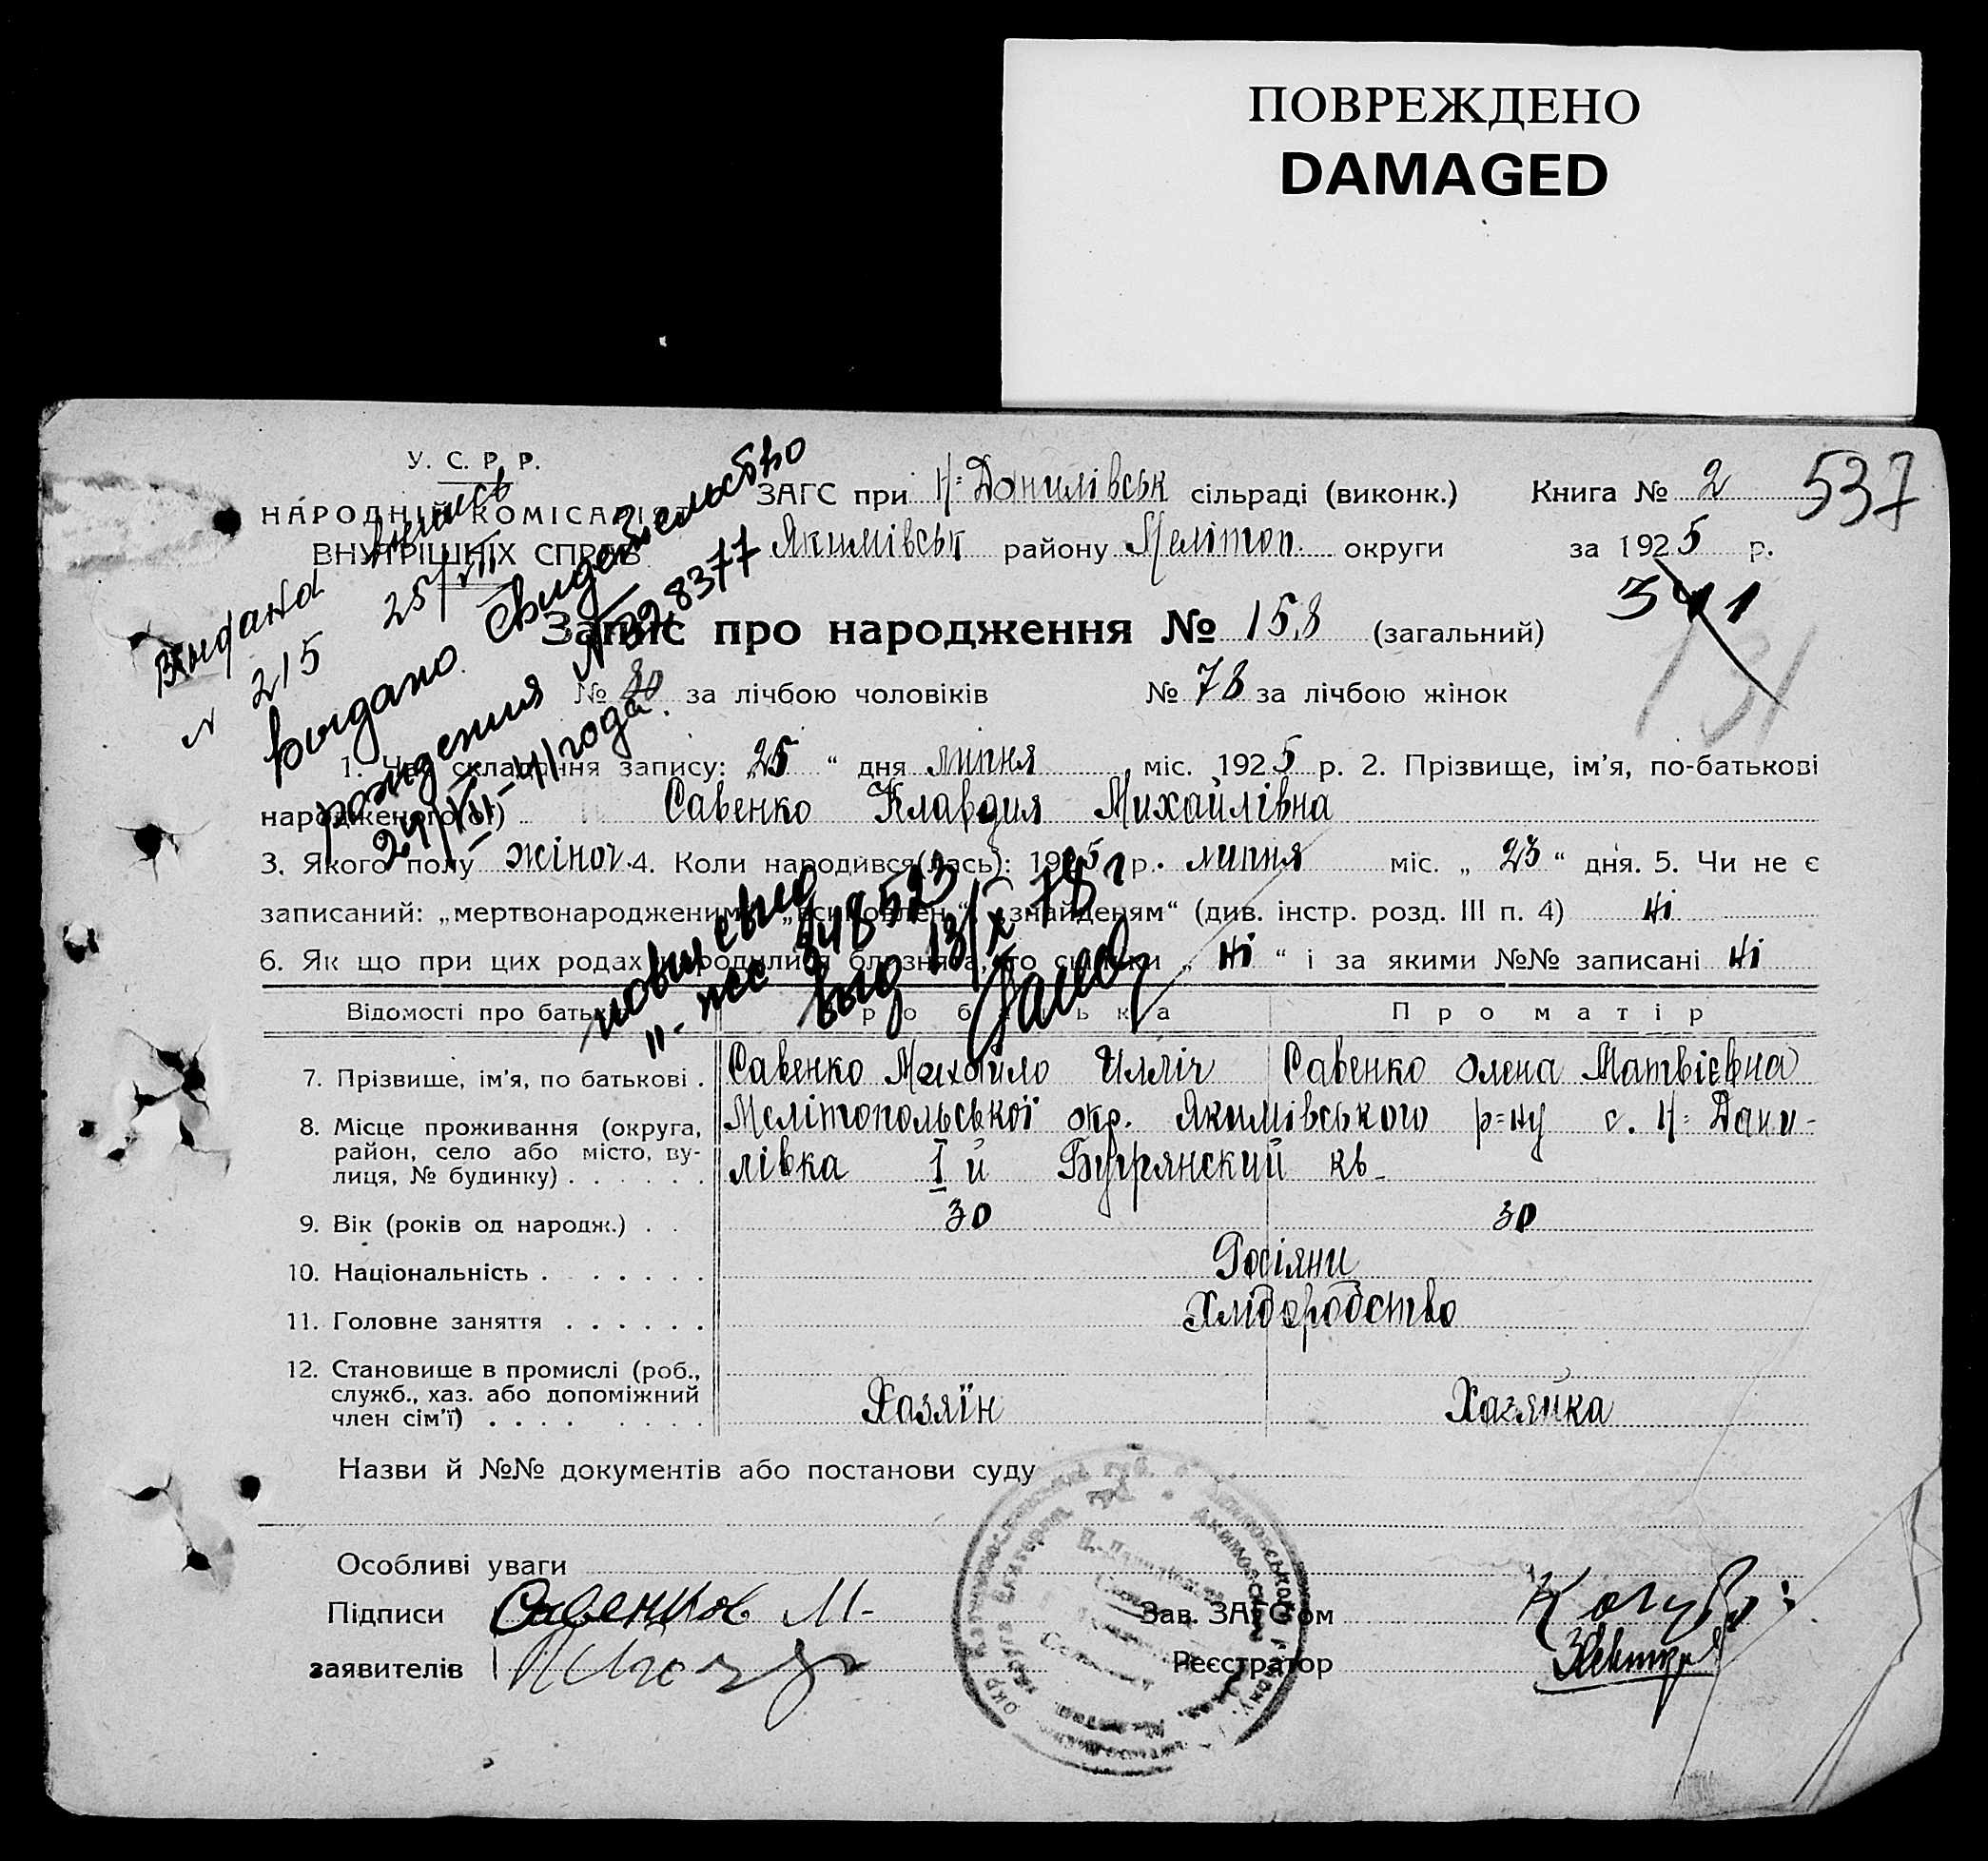 ПОВРЕЖДЕНО
DAMAGED
У. С. Р. Р.
НАРОДНІЙ КОМІСАРІЯТ
ВНУТРІШНІХ СПРАВ
ЗАГС при Н=Данилівськ сільраді (виконк.) Книга № 2 537
Якимівськ району Меліт​оп. округи за 1925 р.
Выдана
N 215 25/VII
Выдано Свидетельство
рождения N 328377
24/VII-41 года.
Запис про народження № 158 (загальний)
№ 80 за лічбою чоловіків № 78 за лічбою жінок
131
1. Час складання запису: 25 “ дня липня міс. 1925 р. 2. Прізвище, ім’я, по-батькові
народженого(ої) Савенко Клавдия Михайлівна
3. Якого полу жіноч. 4. Коли народився(лась): 1925 р. липня міс. „ 23 “ дня. 5. Чи не є
записаний: „мертвонародженим“ „ “ „знайденям“ (див. інстр. розд. III п. 4) ні
6. Як що при цих родах народилися близнята, то скільки „ ні “ і за якими №№ записані ні
848523
выд 13/X 78 г
Відомості про батьків Про батька Про матір
7. Прізвище, ім’я, по батькові . Савенко Михайло Илліч Савенко Олена Матвієвна
8. Місце проживання (округа, район, село або місто, вулиця, № будинку) . . . . . . Мелітопольської окр. Якимівського р=ну с. Н=Дани-
лівка I й Бугрянский кв.
9. Вік (років од народж.) . . 30 30
10. Національність . . . . . . Росіяни
11. Головне заняття . . . . . . Хлібороб​ство
12. Становище в промислі (роб., служб., хаз. або допоміжний член сім’ї) . . . . Хазяїн Хазяйка
Назви й №№ документів або постанови суду
Особливі уваги
Підписи Савенков М- Зав. ЗАГС’ом
заявителів Реєстратор